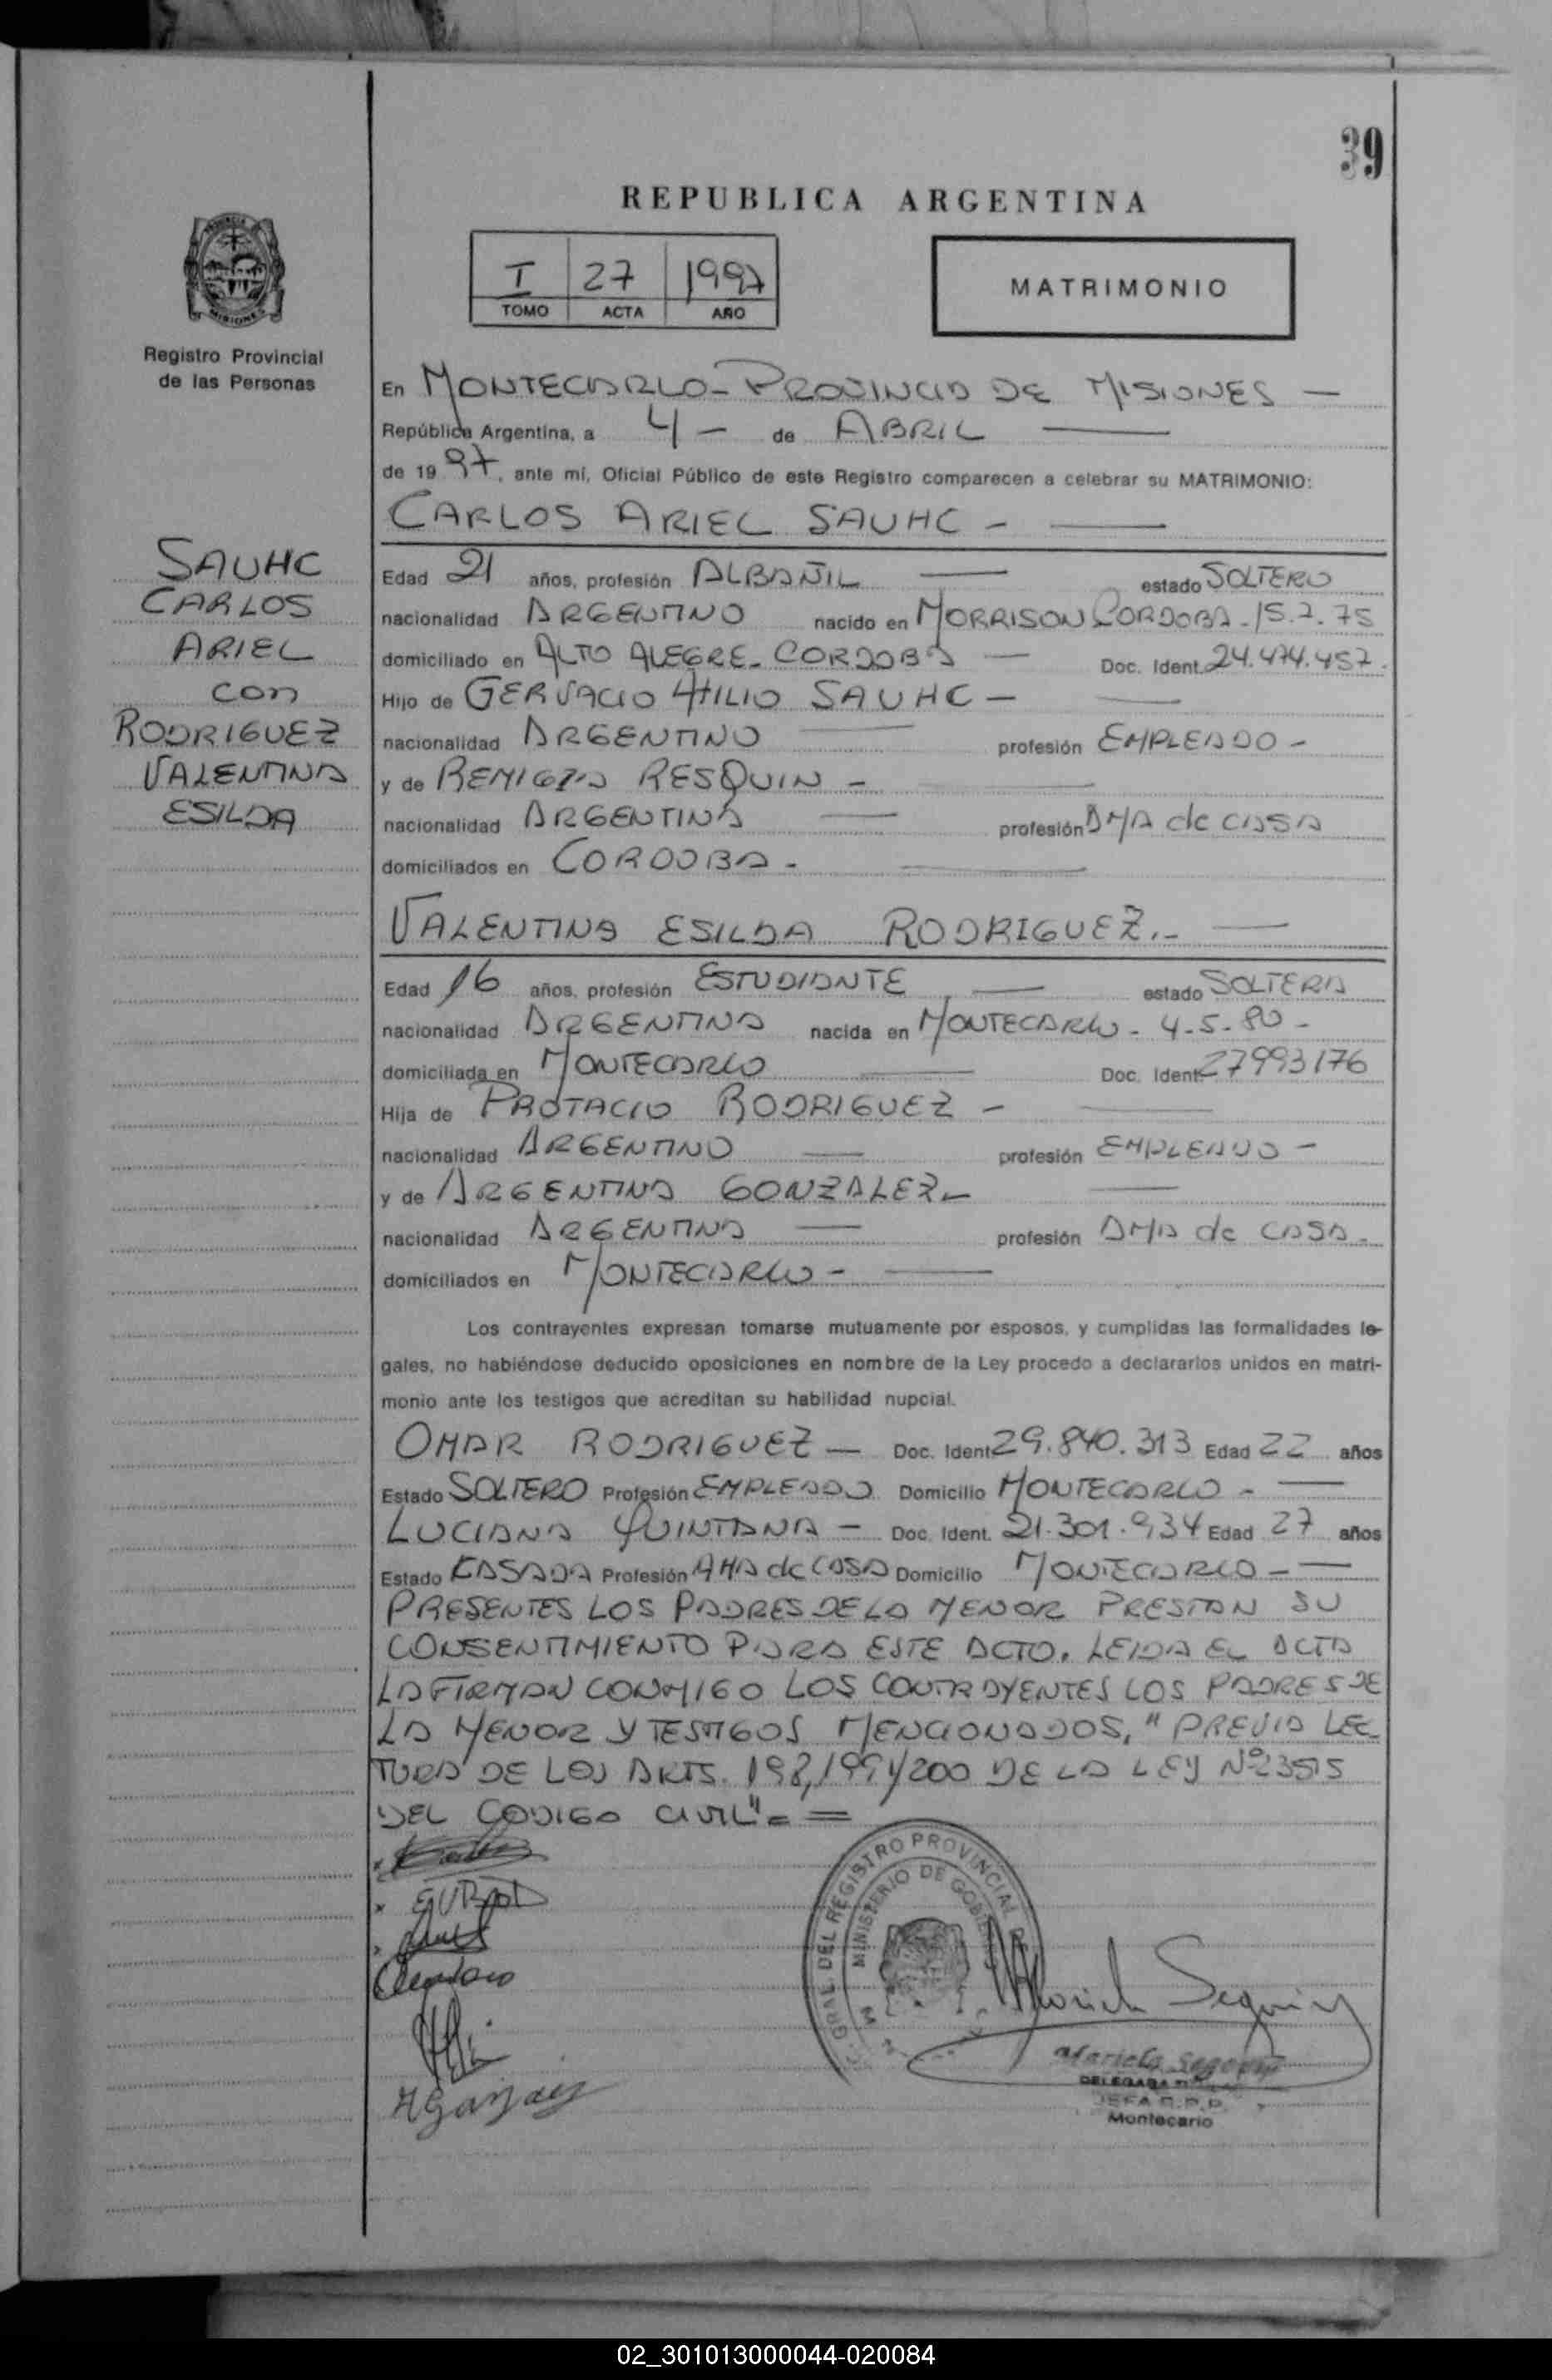 39
REPUBLICA ARGENTINA
I 27 1997
TOMO ACTA AÑO
MATRIMONIO
MISIONES
Registro Provincial
de las Personas
SAUHC
CARLOS
ARIEL
con
RODRIGUEZ
VALENTINA
ESILDA
En MONTECARLO - PROVINCIA DE MISIONES —
República Argentina, a 4 - de ABRIL —
de 19 97, ante mí, Oficial Público de este Registro comparecen a celebrar su MATRIMONIO:
CARLOS ARIEL SAUHC - —
Edad 21 años, profesión ALBAÑIL — estado SOLTERO
nacionalidad ARGENTINO nacido en MORRISON CORDOBA - 15.7.75
domiciliado en ALTO ALEGRE - CORDOBA — Doc. Ident. 24.474.457.
Hijo de GERVACIO ATILIO SAUHC - —
nacionalidad ARGENTINO — profesión EMPLEADO -
y de REMIGIA RESQUIN - —
nacionalidad ARGENTINA — profesión AMA de CASA
domiciliados en CORDOBA - —
VALENTINA ESILDA RODRIGUEZ.- —
Edad 16 años, profesión ESTUDIANTE — estado SOLTERA
nacionalidad ARGENTINA nacida en MONTECARLO - 4-5-80 -
domiciliada en MONTECARLO — Doc. Ident. 27993176
Hija de PROTACIO RODRIGUEZ - —
nacionalidad ARGENTINO — profesión EMPLEADO -
y de ARGENTINA GONZALEZ - —
nacionalidad ARGENTINA — profesión AMA de CASA -
domiciliados en MONTECARLO - —
Los contrayentes expresan tomarse mutuamente por esposos, y cumplidas las formalidades le-
gales, no habiéndose deducido oposiciones en nombre de la Ley procedo a declararlos unidos en matri-
monio ante los testigos que acreditan su habilidad nupcial.
OMAR RODRIGUEZ — Doc. Ident. 29.840.313 Edad 22 años
Estado SOLTERO Profesión EMPLEADO Domicilio MONTECARLO - —
LUCIANA QUINTANA - Doc. Ident. 21.301.934 Edad 27 años
Estado CASADA Profesión AMA de CASA Domicilio MONTECARLO - —
PRESENTES LOS PADRES DE LA MENOR PRESTAN SU
CONSENTIMIENTO PARA ESTE ACTO. LEIDA EL ACTA
LA FIRMAN CONMIGO LOS CONTRAYENTES LOS PADRES DE
LA MENOR Y TESTIGOS MENCIONADOS, "PREVIA LEC
TURA DE LOS ARTS. 198, 199 y 200 DE LA LEY Nº 23515
DEL CODIGO CIVIL" = =
GRAL. DEL REGISTRO PROVINCIAL DE
MINISTERIO DE GOBIE
Mariela Segovia
DELEGADA
JEFA R.P.P.
Montecarlo
02_301013000044-020084